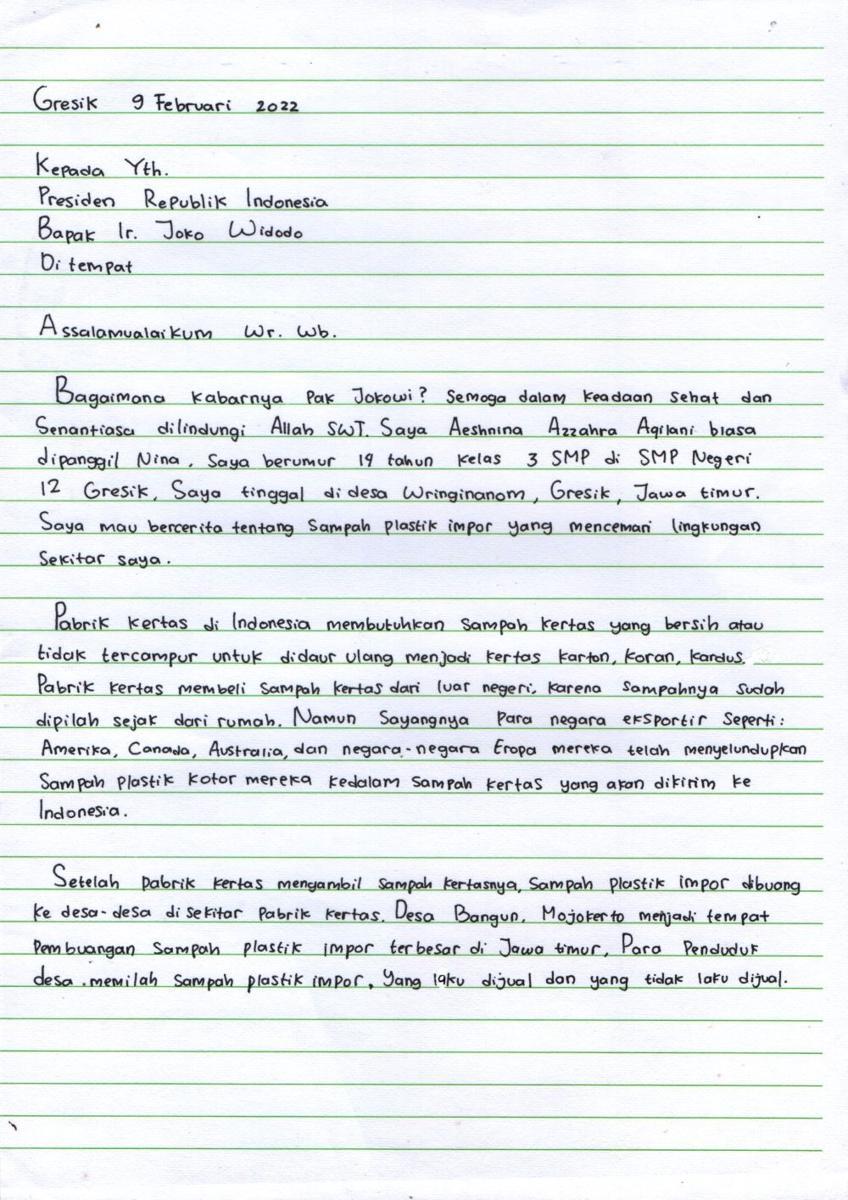 Gresik 9 Februari 2022
Kepada Yth.
Presiden Republik Indonesia
Bapak Ir. Joko Widodo
Di tempat
Assalamualaikum Wr. Wb.
Bagaimana kabarnya Pak Jokowi? Semoga dalam keadaan sehat dan
Senantiasa dilindungi Allah SWT. Saya Aeshnina Azzahra Aqilani biasa
dipanggil Nina, Saya berumur 14 tahun kelas 3 SMP di SMP Negeri
12 Gresik, Saya tinggal di desa Wringinanom, Gresik, Jawa timur.
Saya mau bercerita tentang Sampah plastik impor yang mencemari lingkungan
Sekitar saya.
Pabrik kertas di Indonesia membutuhkan sampah kertas yang bersih atau
tidak tercampur untuk didaur ulang menjadi kertas karton, koran, kardus.
Pabrik kertas membeli sampah kertas dari luar negeri, karena sampahnya sudah
dipilah sejak dari rumah. Namun Sayangnya Para negara eksportir seperti:
Amerika, Canada, Australia, dan negara-negara Eropa mereka telah menyelundupkan
Sampah plastik kotor mereka kedalam sampah kertas yang akan dikirim ke
Indonesia.
Setelah pabrik kertas mengambil sampah kertasnya, Sampah plastik impor dibuang
ke desa-desa di sekitar pabrik kertas. Desa Bangun, Mojokerto menjadi tempat
Pembuangan Sampah plastik impor terbesar di Jawa timur, Para Penduduk
desa memilah sampah plastik impor, Yang laku dijual dan yang tidak laku dijual.